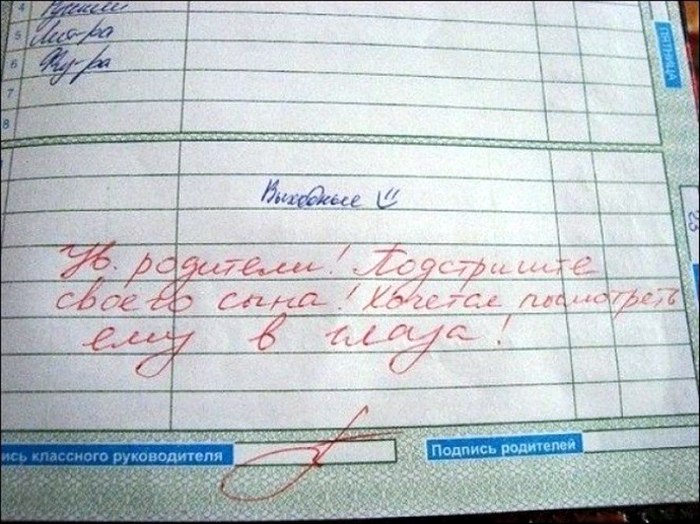 4
5 Лит-ра
6 Фу-ра
7
8
ПЯТНИЦА
Выходные
23
Ув. родители! Подстригите
своего сына! Хочется посмотреть
ему в глаза!
ись классного руководителя
Подпись родителей